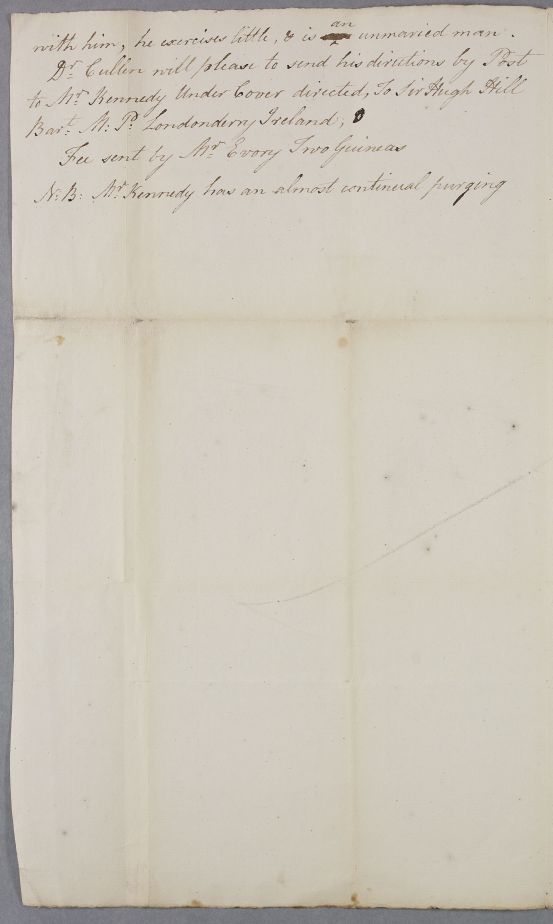 with him, he exercises little, & is an unmaried man.
Dr. Cullen will please to send his directions by Post
to Mr. Kennedy Under Cover directed, To Sir Hugh Hill
Bart. M: P. Londonderry Ireland;
Fee sent by Mr. Evory Two Guineas
N:B: Mr. Kennedy has an almost continual purging